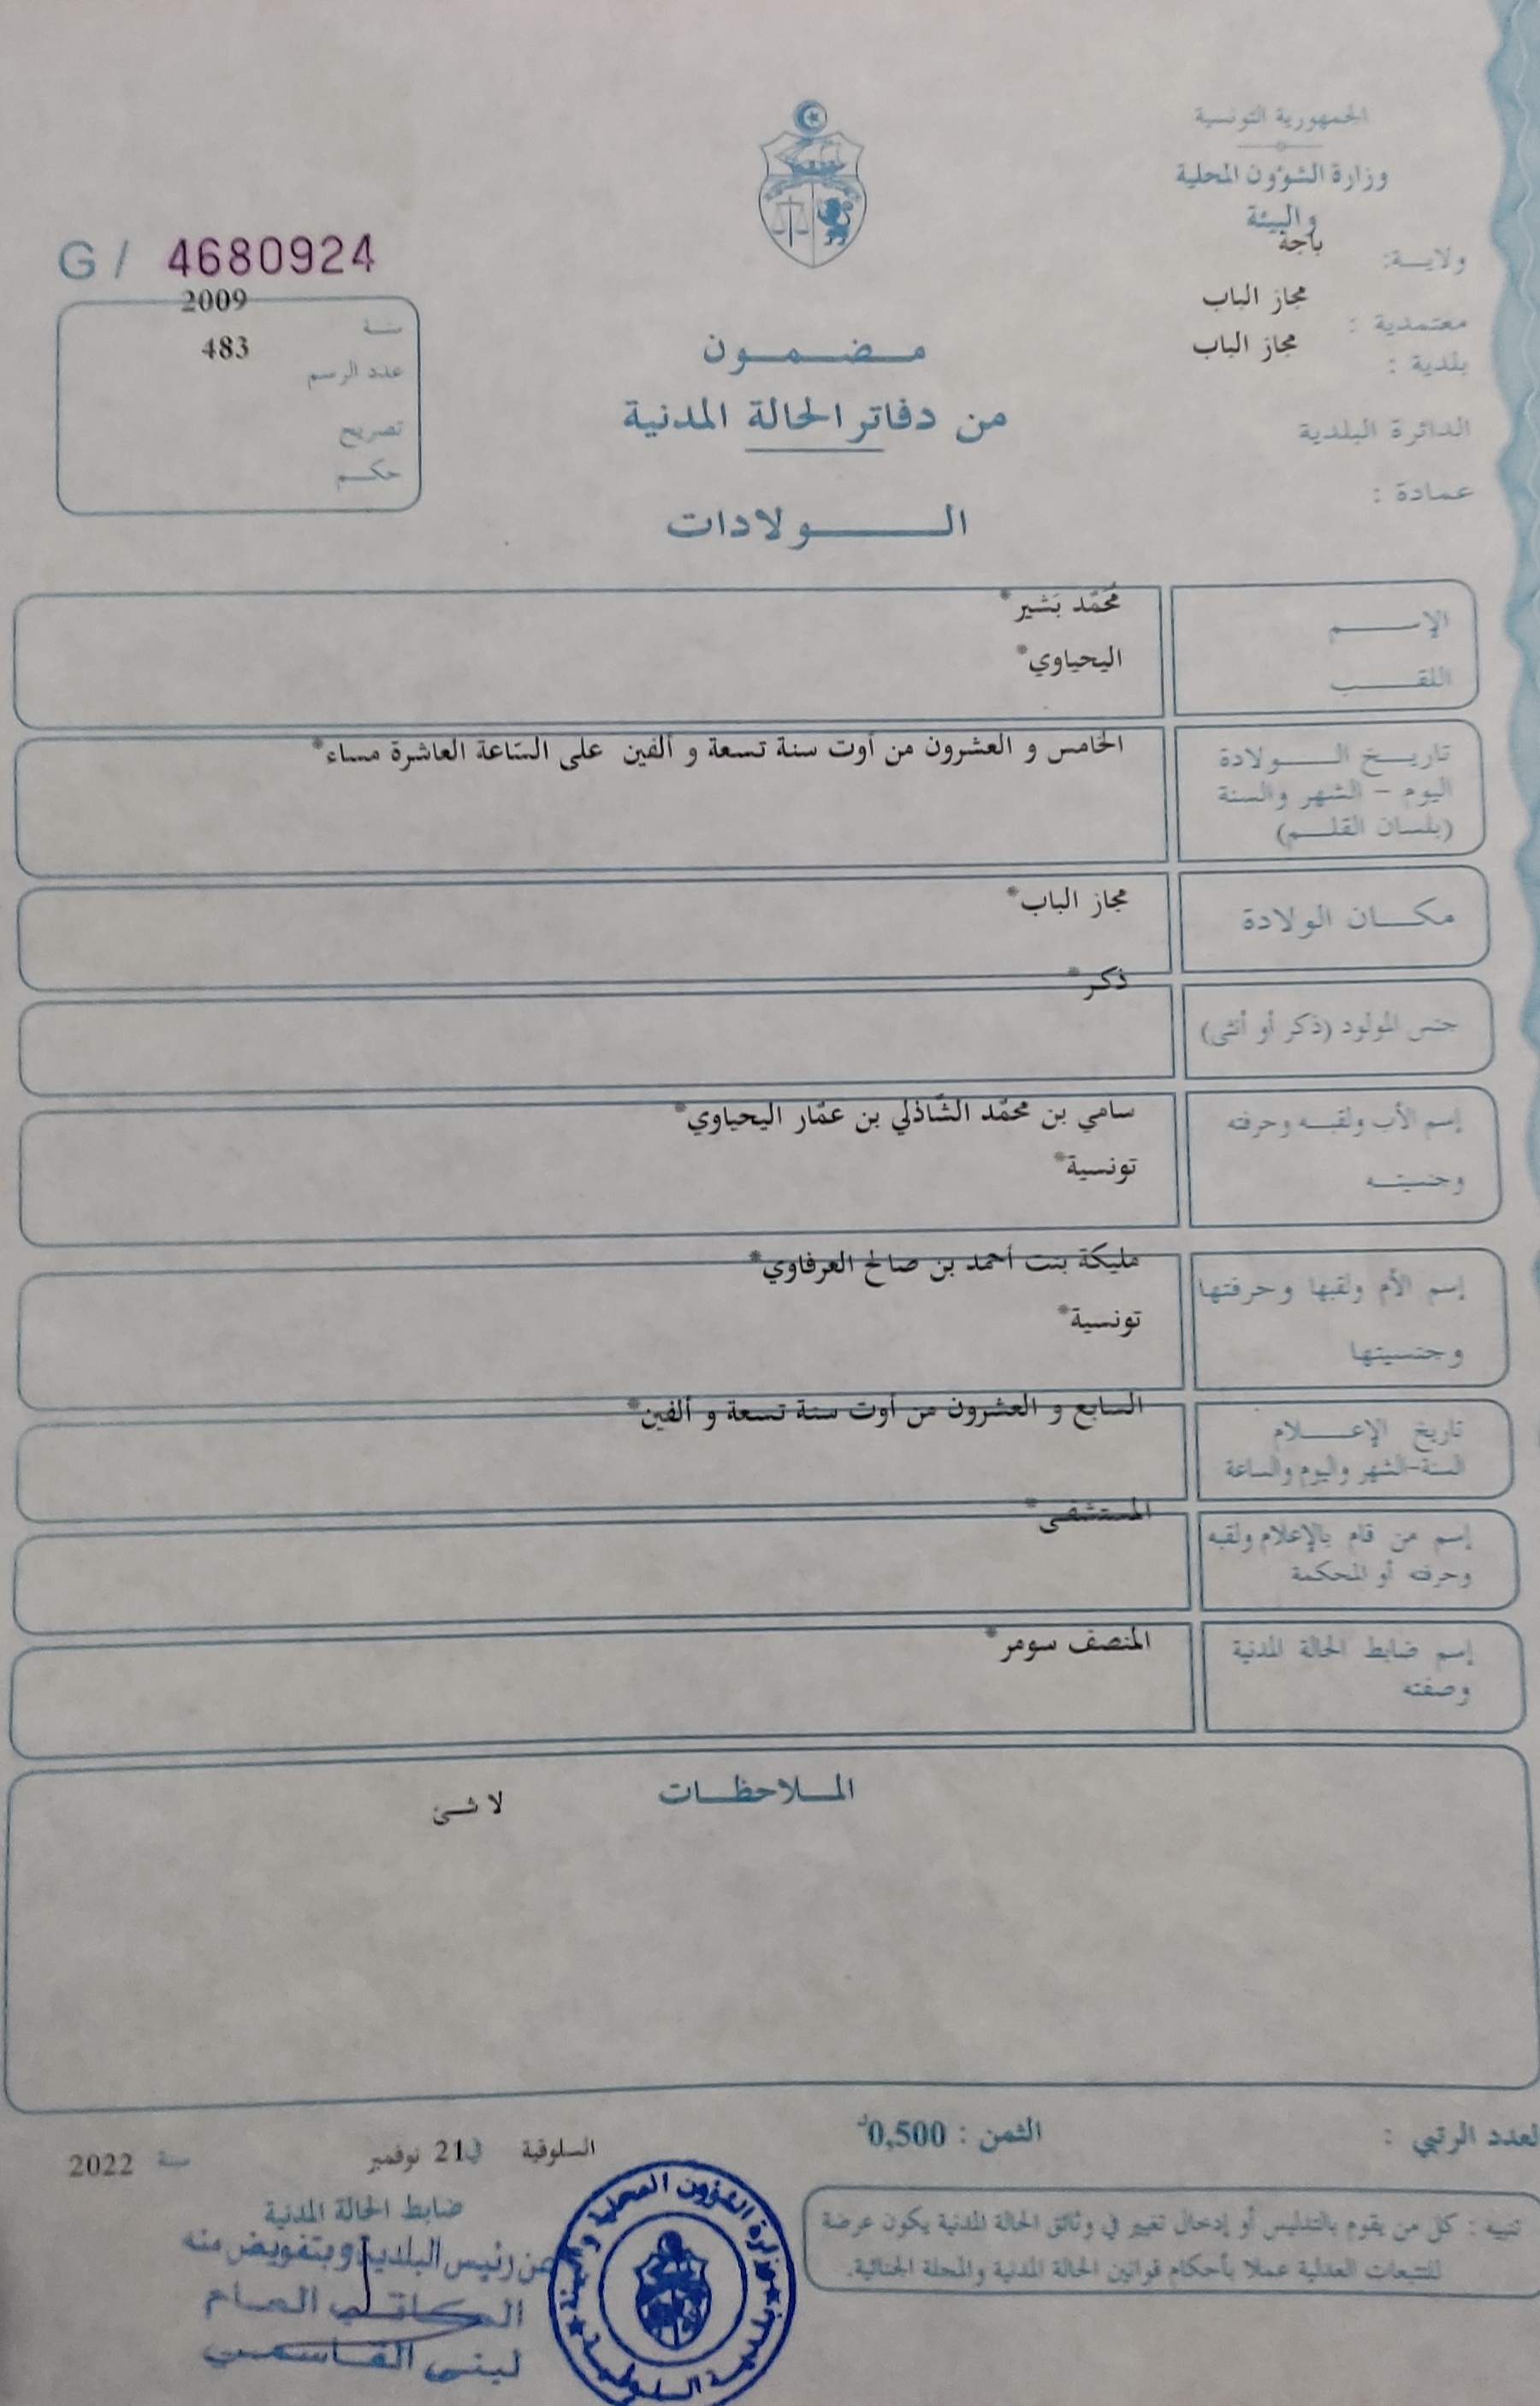 الجمهورية التونسية
وزارة الشؤون المحلية
والبيئة
ولايـــة: باجة
معتمدية : مجاز الباب
بلدية : مجاز الباب
الدائرة البلدية
عمادة :
G / 4680924
سنة 2009
عدد الرسم 483
تصريح
حكم
مضمون
من دفاتر الحالة المدنية
الولادات
الإسم
مُحَمّد بَشير*
اللقب
اليحياوي*
تاريخ الولادة
اليوم – الشهر والسنة
(بلسان القلم)
الخامس و العشرون من أوت سنة تسعة و ألفين على السّاعة العاشرة مساء*
مكان الولادة
مجاز الباب*
جنس المولود (ذكر أو أنثى)
ذكر*
إسم الأب ولقبه وحرفته
سامي بن محمّد الشّاذلي بن عمّار اليحياوي*
وجنسيته
تونسية*
إسم الأم ولقبها وحرفتها
مليكة بنت أحمد بن صالح العرفاوي*
وجنسيتها
تونسية*
تاريخ الإعلام
السنة-الشهر واليوم والساعة
السابع و العشرون من أوت سنة تسعة و ألفين*
إسم من قام بالإعلام ولقبه
وحرفته أو المحكمة
المستشفى*
إسم ضابط الحالة المدنية
وصفته
المنصف سومر*
الملاحظات
لا شئ
لعدد الرتبي :
الثمن : 0,500د
السلوقية في 21 نوفمبر سنة 2022
ضابط الحالة المدنية
عن رئيس البلدية وبتفويض منه
الكاتب العام
لبنى القاسمي
وزارة الشؤون المحلية و البيئة
بلدية السلوقية
تنبيه : كل من يقوم بالتدليس أو إدخال تغيير في وثائق الحالة المدنية يكون عرضة
للتتبعات العدلية عملا بأحكام قوانين الحالة المدنية والمجلة الجنائية.